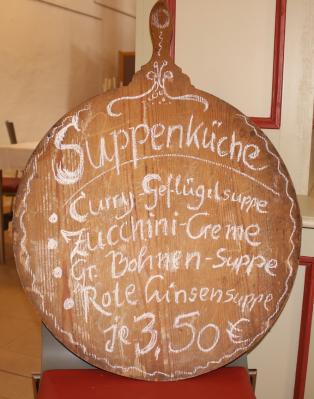 Suppenküche
Curry Geflügelsuppe
Zucchini-Creme
Gr. Bohnen-Suppe
Rote Linsensuppe
je 3,50 €